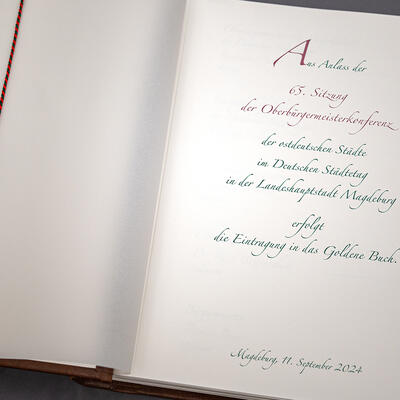 Aus Anlass der
65. Sitzung
der Oberbürgermeisterkonferenz
der ostdeutschen Städte
im Deutschen Städtetag
in der Landeshauptstadt Magdeburg
erfolgt
die Eintragung in das Goldene Buch.
Magdeburg, 11. September 2024